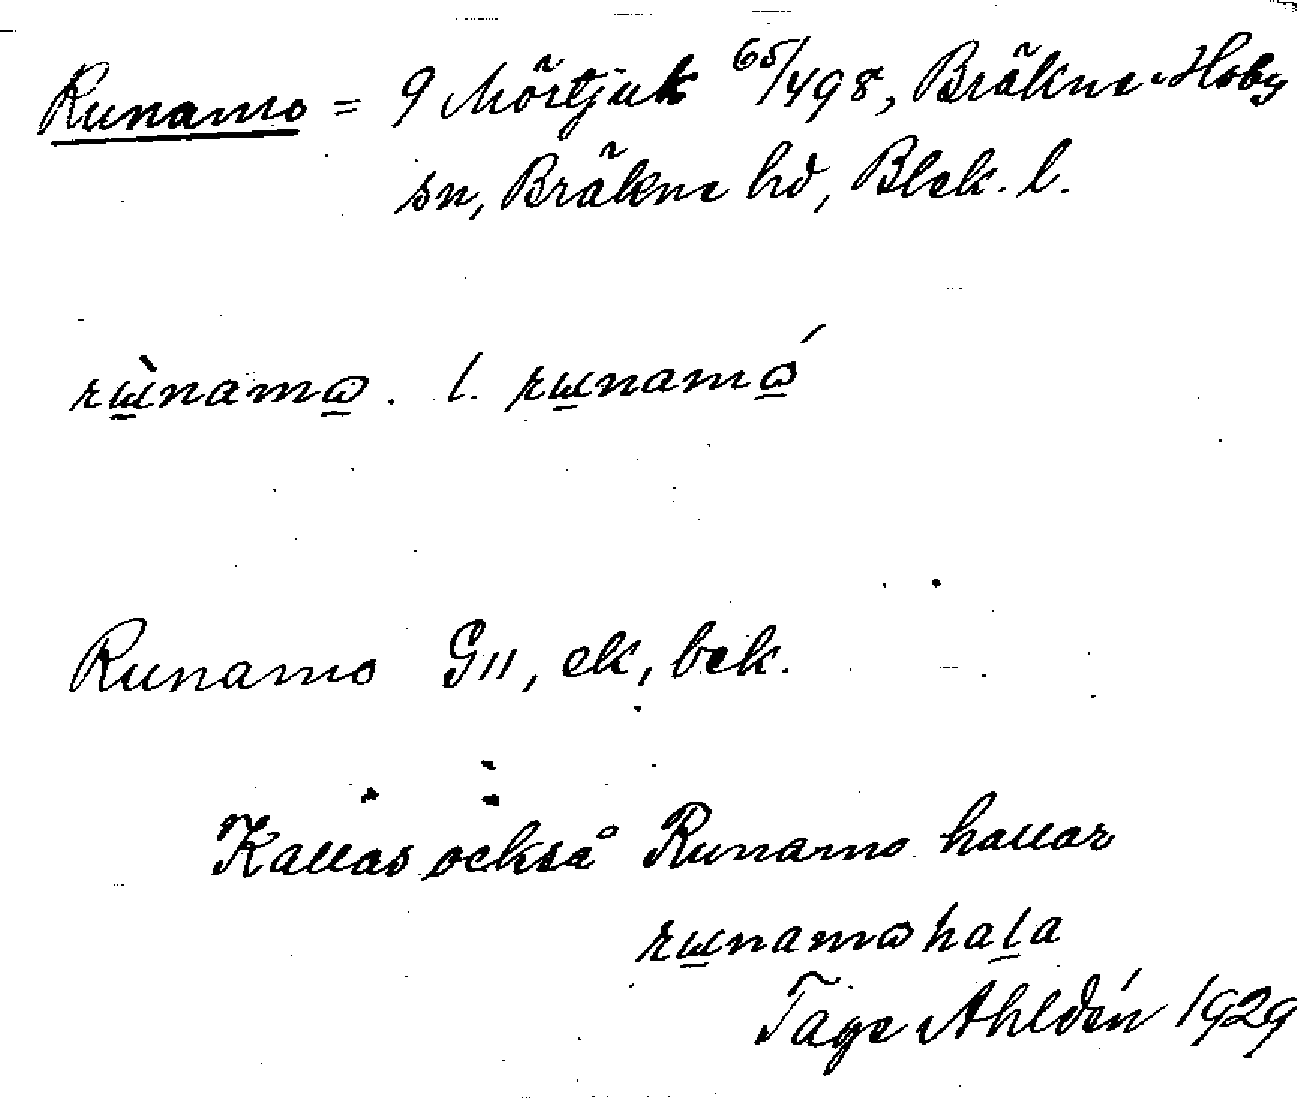 Runamo = 9 Mörtjuk 65/498, Bräkne-Hoby
sn, Bräkne hd, Blek. l.
rɯ̀namɷ. l. rɯnamɷ́
Runamo G11, ek, bek.
Kallas också Runamo hallar
rɯnamɷhala
Tage Ahldén 1929